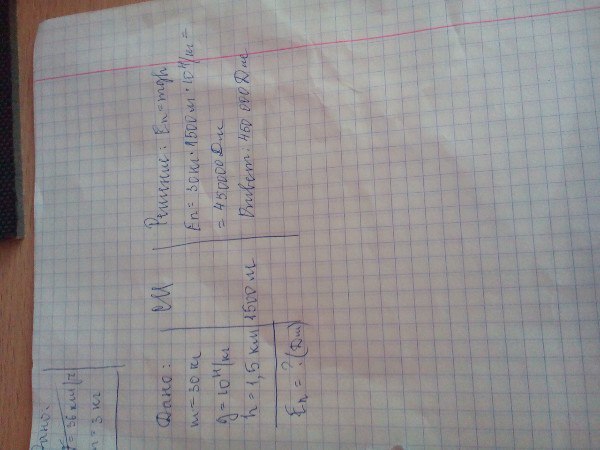 Дано:
= 36 км/ч
= 3 кг
Дано:
m = 30 кг
g = 10 Н/кг
h = 1,5 км
Eп = ? (Дж)
СИ
1500 м
Решение: Eп = mgh
Eп = 30 кг · 1500 м · 10 Н/кг =
= 450000 Дж
Ответ: 450 000 Дж